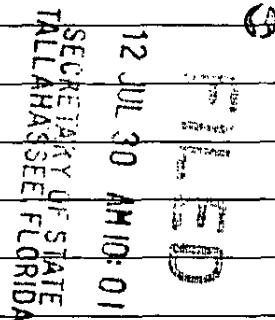 FILED
12 JUL 30 AM 10:01
SECRETARY OF STATE
TALLAHASSEE FLORIDA